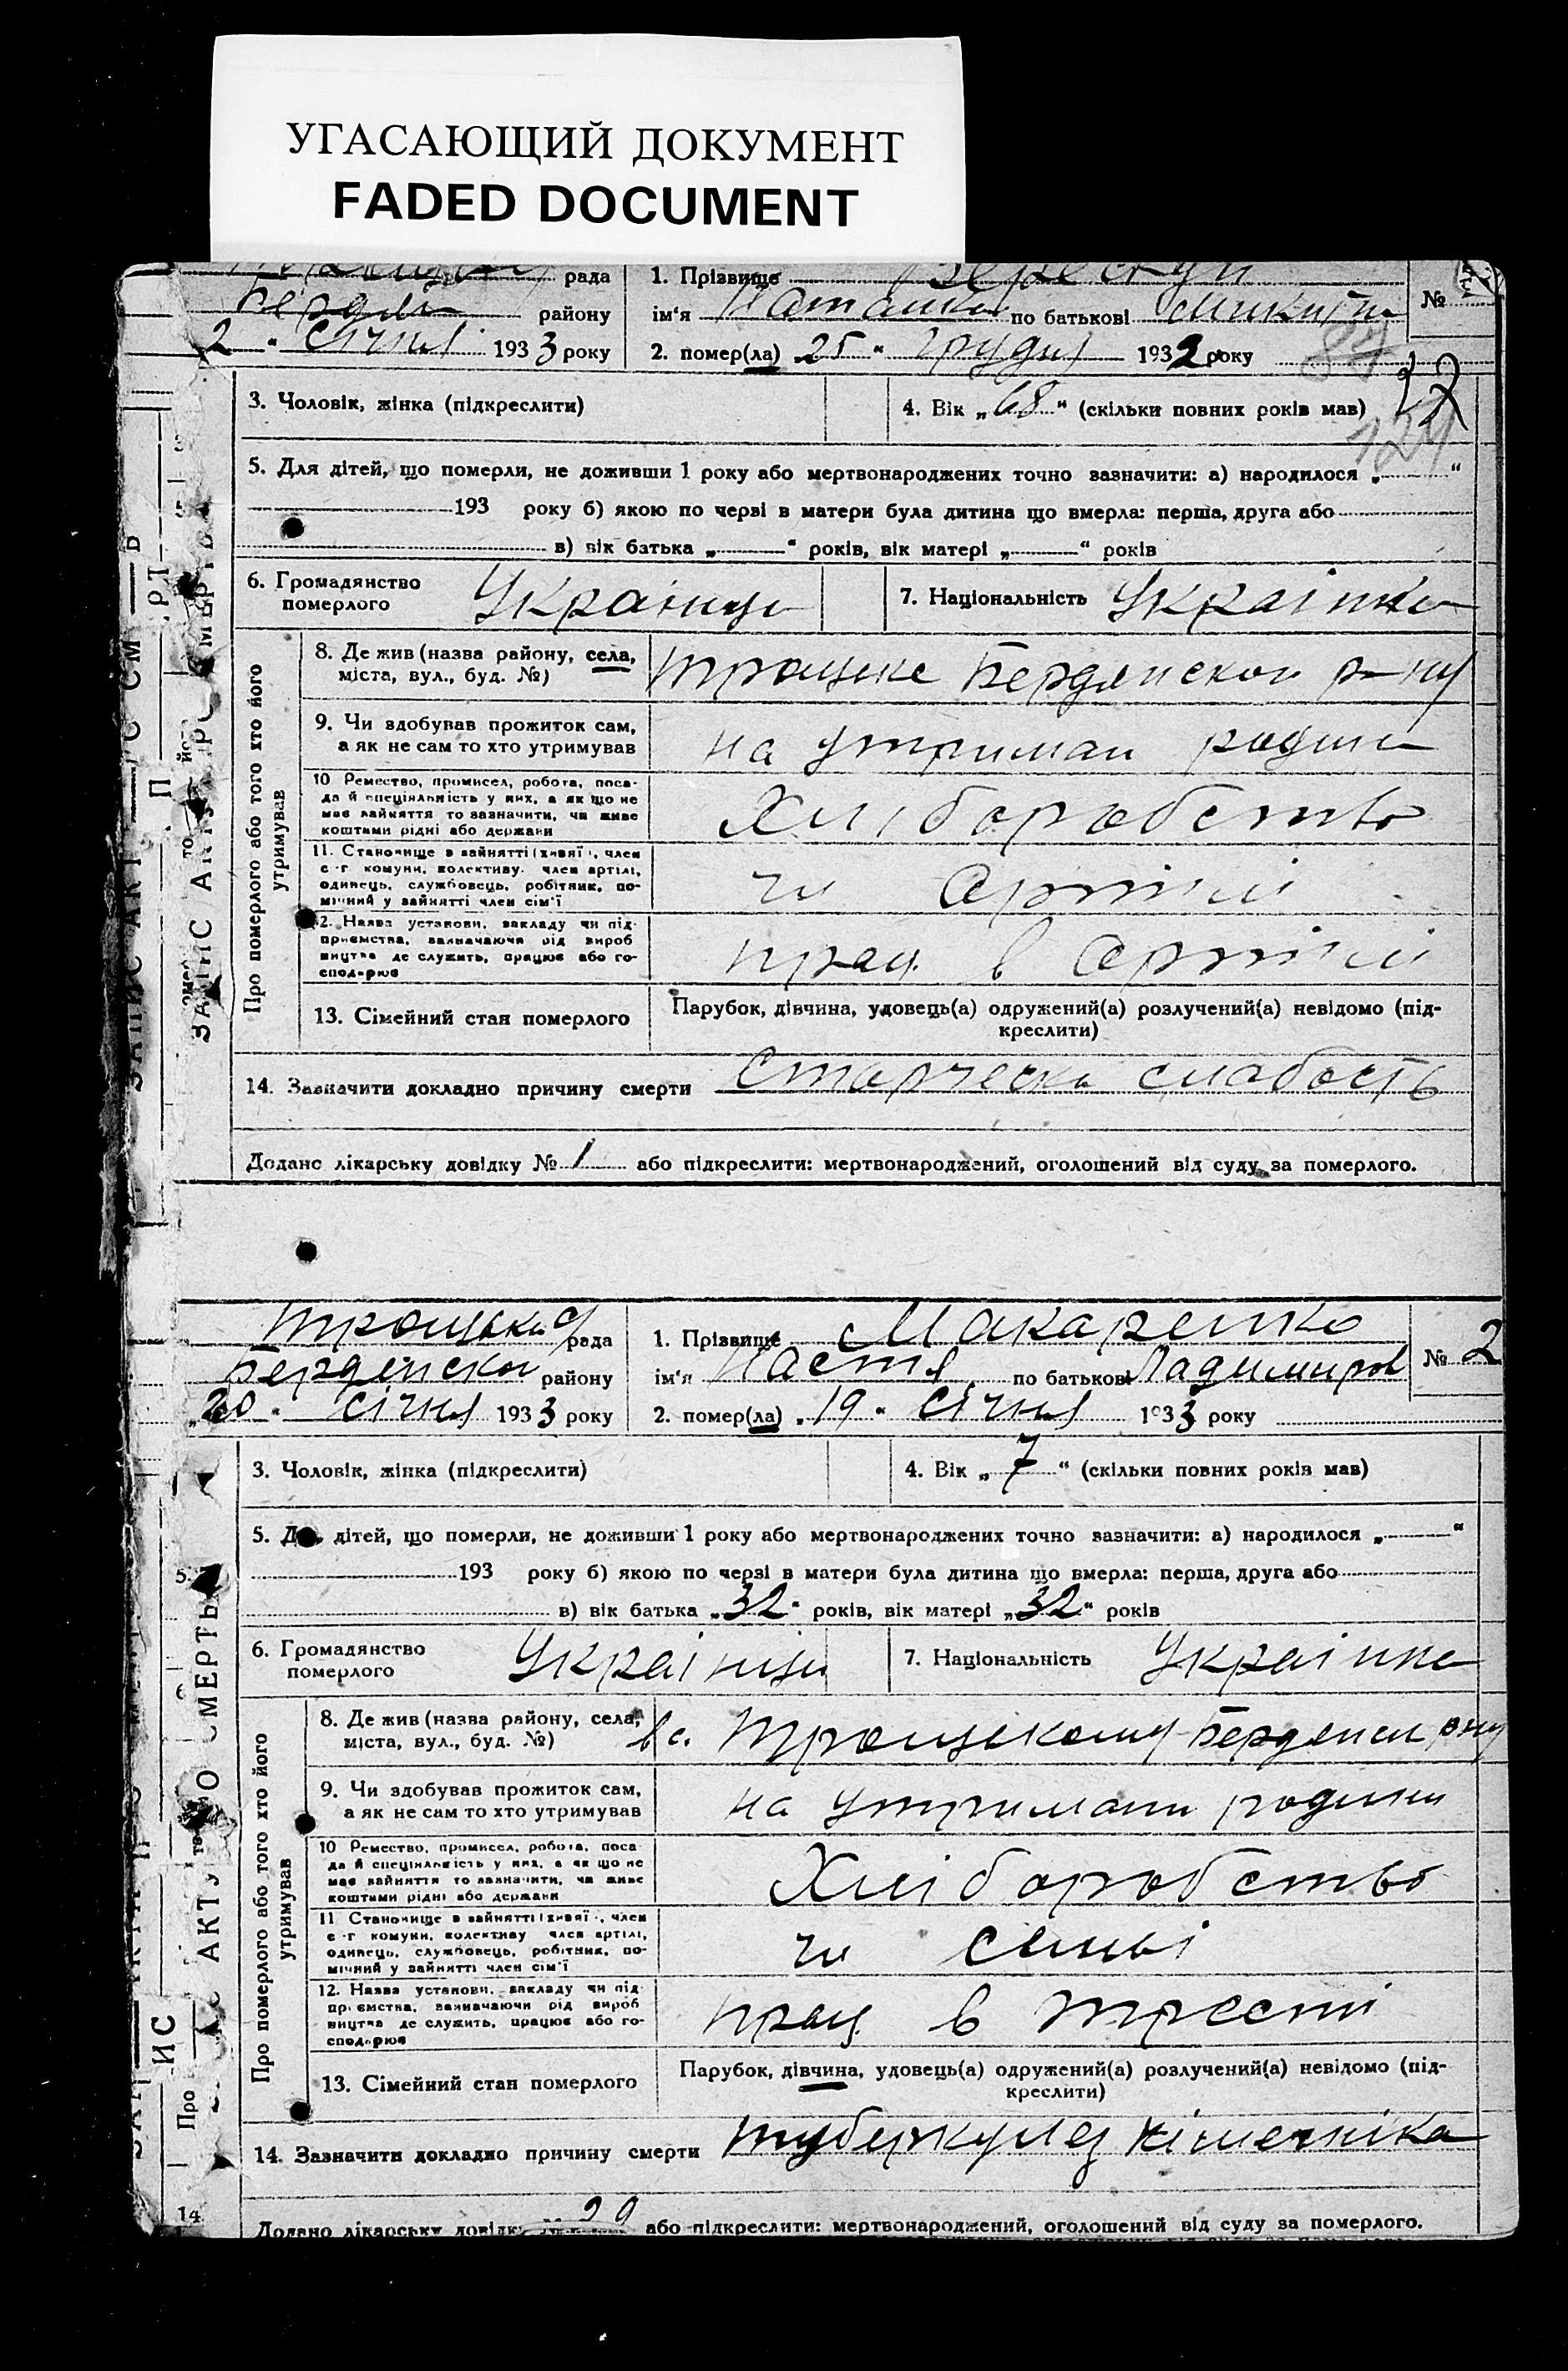 УГАСАЮЩИЙ ДОКУМЕНТ
FADED DOCUMENT
рада
району
2 " січня 1933 року
1. Прізвище
ім'я Наташка по батькові Микит
2. помер(ла) 25 " Грудня 1932 року
№
87
27
124
3. Чоловік, жінка (підкреслити)
4. Вік „68" (скільки повних років мав)
5. Для дітей, що померли, не доживши 1 року або мертвонароджених точно зазначити: а) народилося „ "
193 року б) якою по черві в матери була дитина що вмерла: перша, друга або
в) вік батька „ " років, вік матері „ " років
6. Громадянство
померлого
Українци
7. Національність Українка
Про померлого або того хто його
утримував
8. Де жив (назва району, села,
міста, вул., буд. №)
Троцьке Бердянскои р-ну
9. Чи здобував прожиток сам,
а як не сам то хто утримував
на утриман родини
10 Ремество, промисел, робота, поса-
да й спеціяльність у них, а як що не
має зайняття то зазначити, чи живе
коштами рідні або держави
Хліборобство
11. Становище в зайнятті (хазяї, член
с-г комуни, колективу, член артілі,
одинець, службовець, робітник, по-
мічний у зайнятті член сім'ї
чл Артілі
12. Назва установи, закладу чи під-
приємства, зазначаючи рід вироб
ництва де служить, працює або го-
сподарює
прац. в Артілі
13. Сімейний стан померлого
Парубок, дівчина, удовець(а) одружений(а) розлучений(а) невідомо (під-
креслити)
14. Зазначити докладно причину смерти Старческа слабость
Додано лікарську довідку № 1 або підкреслити: мертвонароджений, оголошений від суду за померлого.
Троцька рада
Бердянскои району
„20 " січня 1933 року
1. Прізвище Макаренко
ім'я Настя по батькові Ладимиров
2. помер(ла) „19 " Січня 1933 року
№ 2
3. Чоловік, жінка (підкреслити)
4. Вік „7" (скільки повних років мав)
5. дітей, що померли, не доживши 1 року або мертвонароджених точно зазначити: а) народилося „ "
193 року б) якою по черзі в матери була дитина що вмерла: перша, друга або
в) вік батька „32" років, вік матері „32" років
6. Громадянство
померлого
Україници
7. Національність Українка
Про померлого або того хто його
утримував
8. Де жив (назва району, села,
міста, вул., буд. №)
в с. Троцькому Бердянск рну
9. Чи здобував прожиток сам,
а як не сам то хто утримував
на утримани родини
10 Ремество, промисел, робота, поса
да й спеціяльність у них, а як що не
має зайняття то зазначити, чи живе
коштами рідні або держави
Хліборобство
11 Становище в зайнятті (хазяї, член
с-г комуни, колективу член артілі,
одинець, службовець, робітник, по-
мічний у зайнятті член сім'ї
чл семьї
12. Назва установи, закладу чи під
приємства, зазначаючи рід вироб
ництва де служить, працює або го-
сподарює
прац. в тресті
13. Сімейний стан померлого
Парубок, дівчина, удовець(а) одружений(а) розлучений(а) невідомо (під-
креслити)
14. Зазначити докладно причину смерти туберкулез кішечніка
Додано лікарську довідку або підкреслити: мертвонароджений, оголошений від суду за померлого.